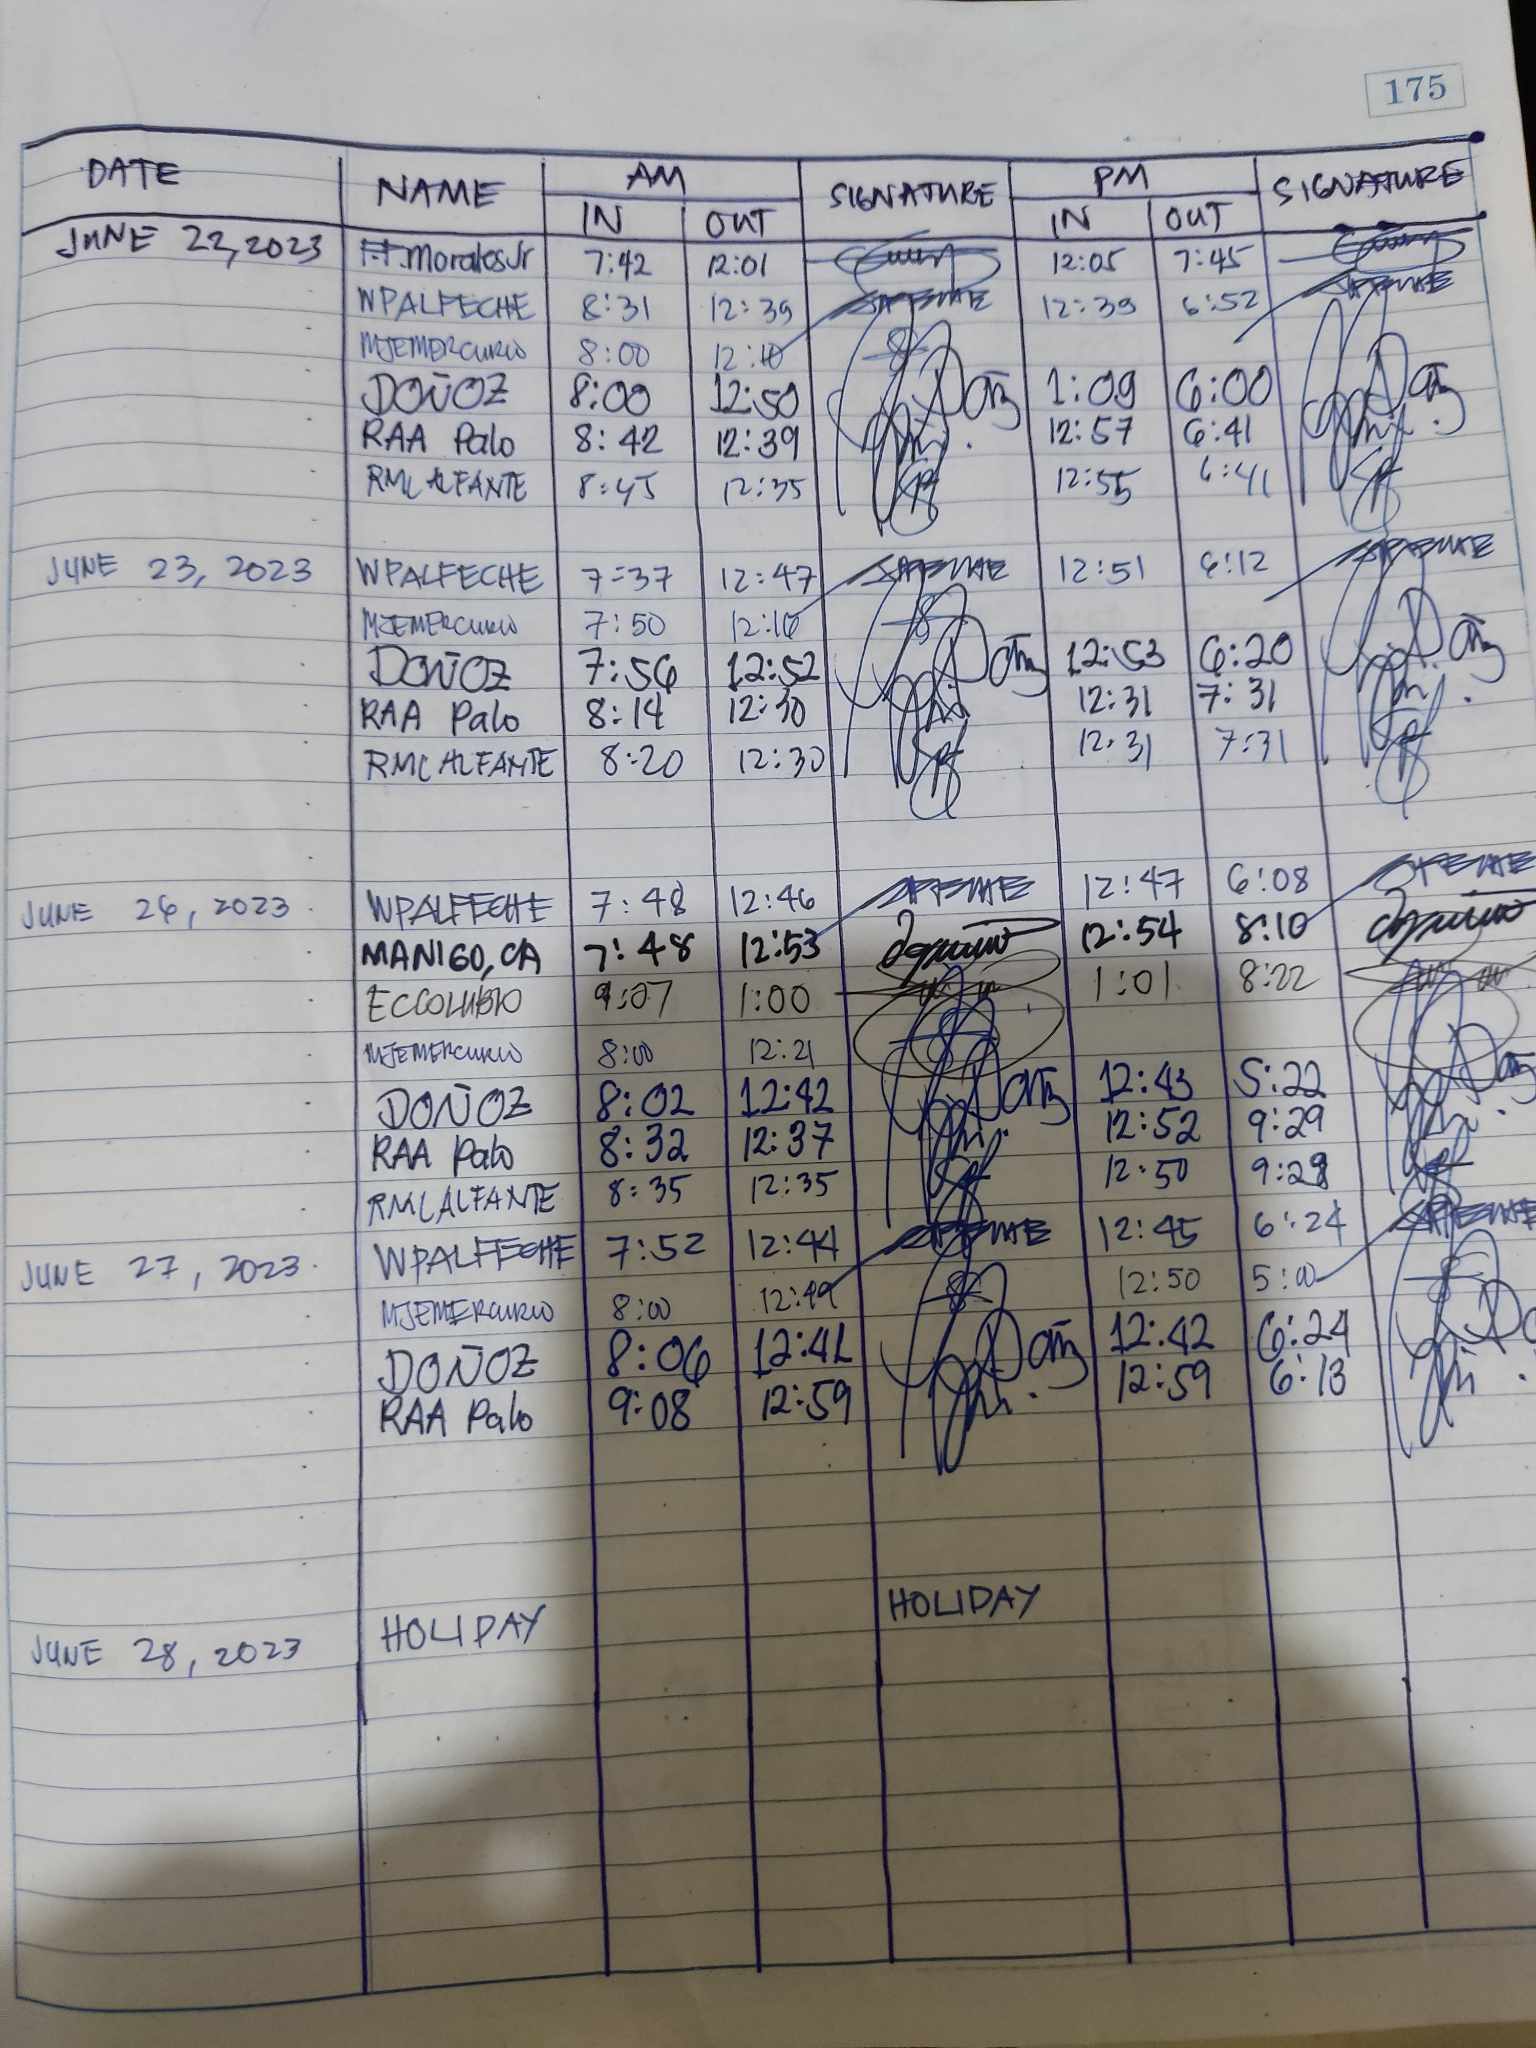 175
DATE NAME AM SIGNATURE PM SIGNATURE
IN OUT IN OUT
JUNE 22, 2023 F.F. Morales Jr 7:42 12:01 12:05 7:45
WPALFECHE 8:31 12:39 12:39 6:52
MJEMERCURIO 8:00 12:10
DOÑOZ 8:00 12:50 1:09 6:00
RAA Palo 8:42 12:39 12:57 6:41
RMCALFANTE 8:45 12:35 12:55 6:41
JUNE 23, 2023 WPALFECHE 7:37 12:47 12:51 6:12
MJEMERCURIO 7:50 12:10
DOÑOZ 7:56 12:52 12:53 6:20
RAA Palo 8:14 12:30 12:31 7:31
RMCALFANTE 8:20 12:30 12:31 7:31
JUNE 26, 2023 WPALFECHE 7:48 12:46 12:47 6:08
MANIGO, CA 7:48 12:53 12:54 8:10
ECCOLUBIO 9:07 1:00 1:01 8:22
MJEMERCURIO 8:00 12:21
DOÑOZ 8:02 12:42 12:43 5:22
RAA Palo 8:32 12:37 12:52 9:29
RMCALFANTE 8:35 12:35 12:50 9:28
JUNE 27, 2023 WPALFECHE 7:52 12:44 12:45 6:24
MJEMERCURIO 8:00 12:49 12:50 5:00
DOÑOZ 8:06 12:41 12:42 6:24
RAA Palo 9:08 12:59 12:59 6:13
JUNE 28, 2023 HOLIDAY HOLIDAY